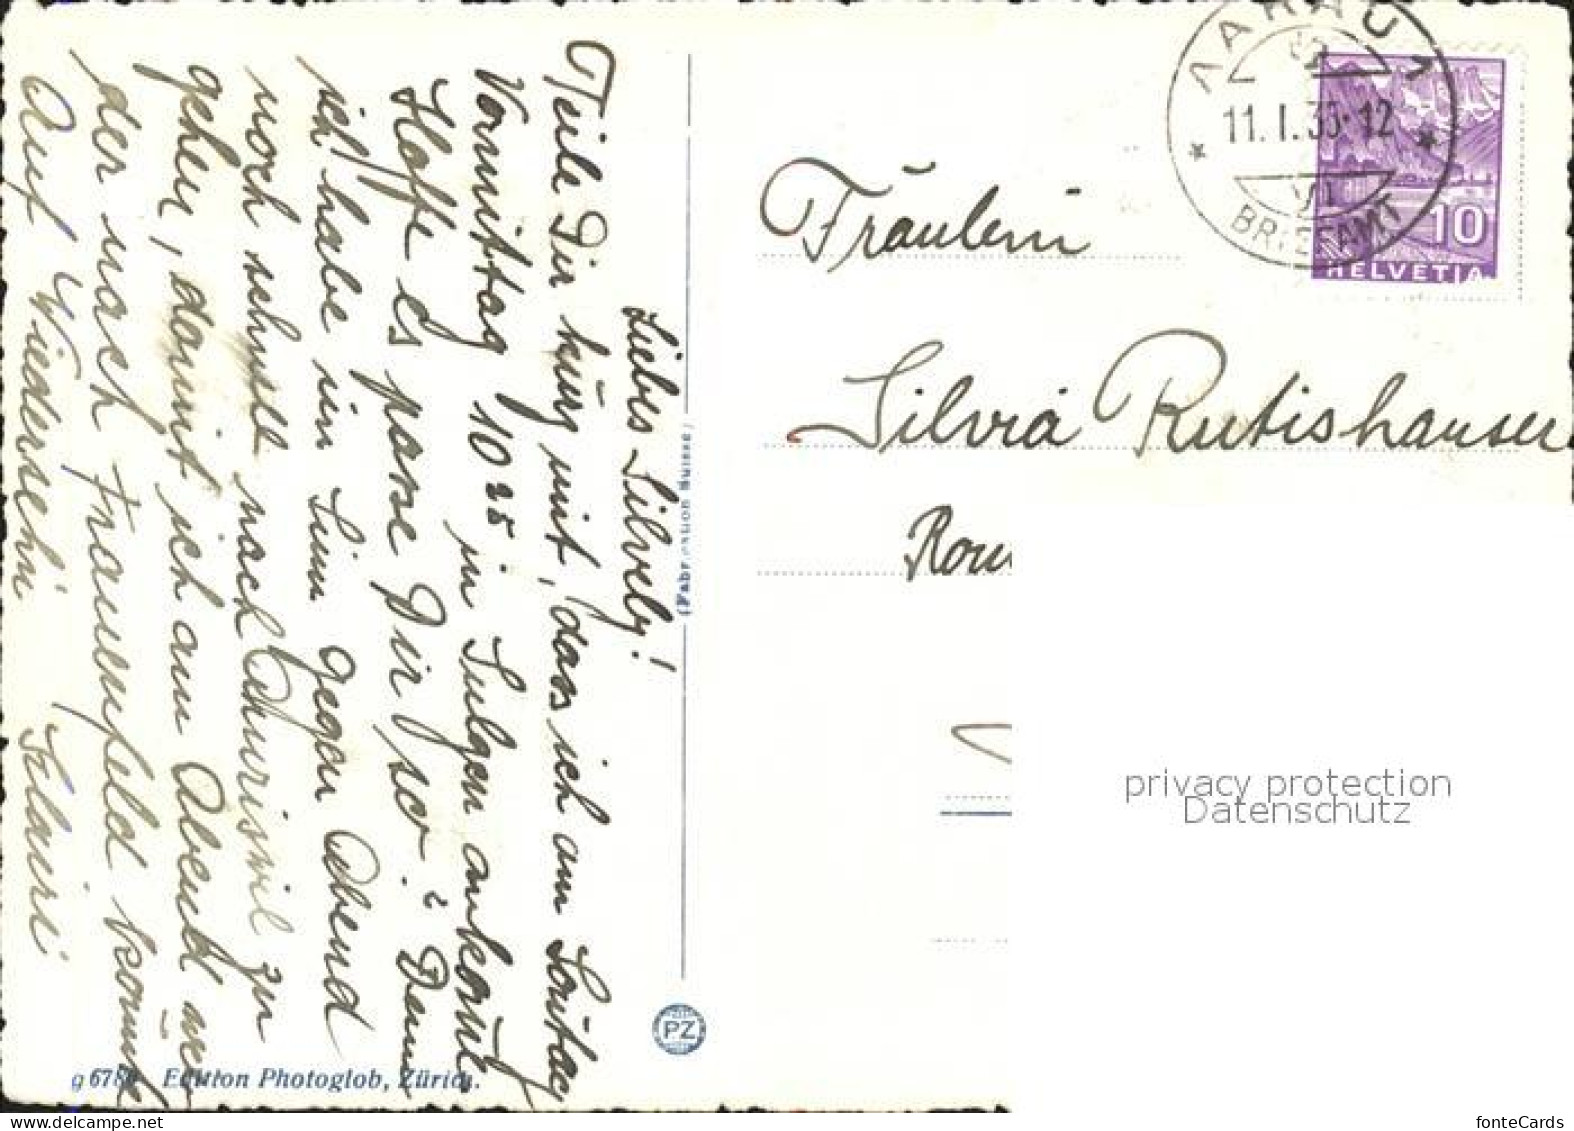 Liebes Silvely!
Teile Dir kurz mit, dass ich am Sontag
Vormittag 10 25 in Sulgen ankome.
Hoffe es passe Dir so? Dann
ich habe im Sinn gegen Abend
noch schnell nach zu
gehen, damit ich am Abend
der nach Frauenfeld komme
Auf Wiedersehn
(Fabrication Suisse)
PZ
Edition Photoglob, Zürich.
AARAU 1
11. I. 12
BRIEFAMT
10
HELVETIA
Fräulein
Silvia Rutishauser
privacy protection
Datenschutz
fonteCards